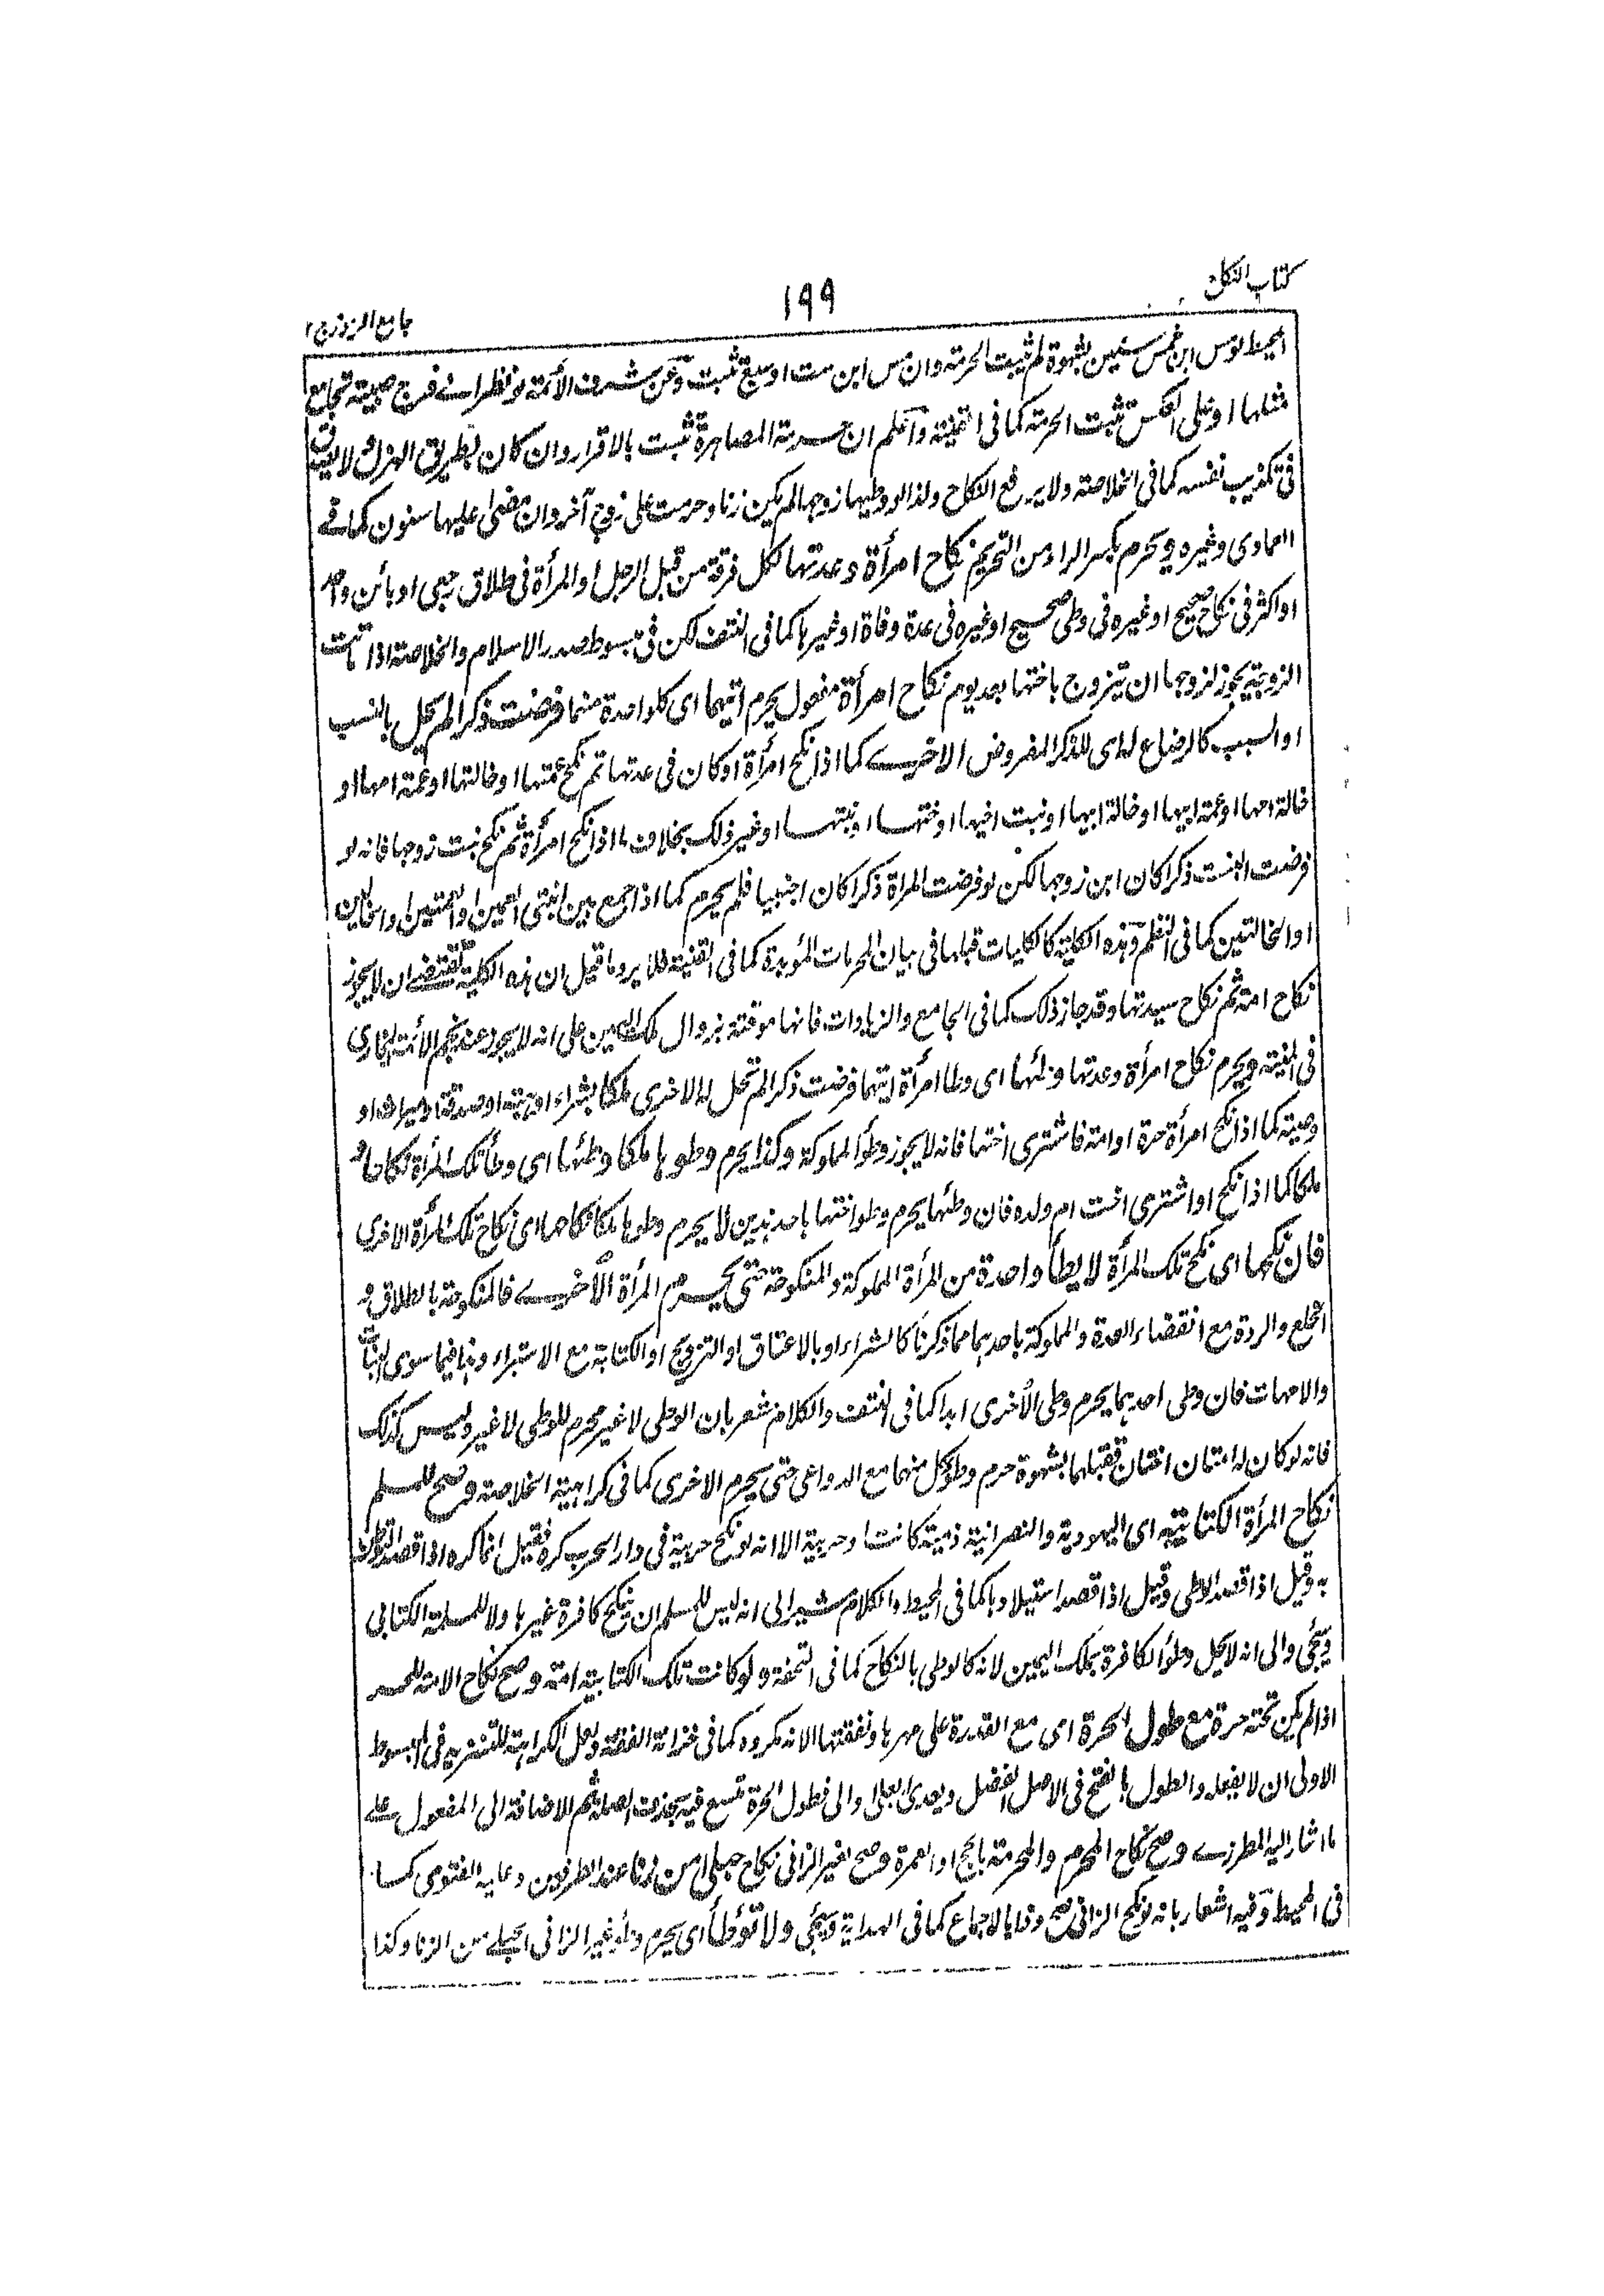 كتاب النكاح
١٩٩
جامع الرموز ج ١
المحيط لو مس ابن خمس سنين بشهوة لم تثبت الحرمة وان مس ابن ست او سبع تثبت وعن شرف الأئمة لو نظر الى فرج صبية تجامع
مثلها او على العكس تثبت الحرمة كما فى القنية واعلم ان حرمة المصاهرة تثبت بالاقرار وان كان بطريق الهزل ولا يصدق
فى تكذيب نفسه كما فى الخلاصة ولا يرفع النكاح ولذا لو وطيها زوجها لم يكن زنا وحرمت على زوج آخر وان مضى عليها سنون كما فے
العمادى وغيره ويحرم بكسر الراء من التحريم نكاح امرأة وعدتها لكل فرقة من قبل الرجل او المرأة فى طلاق رجعى او بائن واحد
او اكثر فى نكاح صحيح او غيره فى وطى صحيح او غيره فى عدة وفاة او غيرها كما فى النتف لكن فى مبسوط صدر الاسلام والخلاصة اذا ماتت
الزوجة يجوز لزوجها ان يتزوج باختها بعد يوم نكاح امرأة مفعول يحرم ايتهما اى كل واحدة منهما فرضت ذكرا لم يحل بالنسب
او السبب كالرضاع له اى للذكر المفروض الاخرے كما اذا نكح امرأة او كان فى عدتها ثم نكح عمتها او خالتها او عمة امها او
خالة امها او عمة ابيها او خالة ابيها او بنت اخيها او اختها او بنتها او غير ذلك بخلاف ما اذا نكح امرأة ثم نكح بنت زوجها فانه لو
فرضت البنت ذكرا كان ابن زوجها لكن لو فرضت المراة ذكرا كان اجنبيا فلم يحرم كما اذا جمع بين ابنتى العمين او العمتين او الخالين
او الخالتين كما فى النظم وهذه الكلية كالكليات قبلها فى بيان المحرمات المؤبدة كما فى القنية فلا يرد ما قيل ان هذه الكلية تقتضے ان لا يجوز
نكاح امة ثم نكاح سيدتها وقد جاز ذلك كما فى الجامع والزيادات فانها موقتة بزوال ملك اليمين على انه لا يجوز عند نجم الأئمة البخارى
فى المنية ويحرم نكاح امرأة وعدتها وطئها اى وطأ امرأة ايتهما فرضت ذكرا لم تحل له الاخرى ملكا بشراء او هبة او صدقة او ميراث او
وصية كما اذا نكح امرأة حرة او امة فاشترى اختها فانه لا يجوز وطؤ المملوكة وكذا يحرم وطوها ملكا وطئها اى وطأ تلك المرأة نكاحا و
ملكا كما اذا نكح او اشترى اخت ام ولده فان وطئها يحرم وطو اختها باحد هذين لا يحرم وطوها ملكا نكاحها اى نكاح تلك المرأة الاخرى
فان نكحها اى نكح تلك المرأة لا يطأ واحدة من المرأة المملوكة والمنكوحة حتى يحرم المرأة الأخرے فالمنكوحة بالطلاق و
الخلع والردة مع انقضاء العدة والمملوكة باحدهما مما ذكرنا كالشراء او بالاعتاق او التزويج او الكتابة مع الاستبراء وهذا فيما سوى البنات
والامهات فان وطى احدهما يحرم وطى الأخرى ابدا كما فى النتف والكلام مشعر بان الوطى لا غير محرم للوطى لا غير وليس كذلك
فانه لو كان له امتان اختان فقبلهما بشهوة حرم وطو كل منهما مع الدواعى حتى يحرم الاخرى كما فى كراهية الخلاصة وصح للمسلم
نكاح المرأة الكتابية اى اليهودية والنصرانية ذمية كانت او حربية الا انه لو نكح حربية فى دار الحرب كره فقيل انما كره اذا قصد التوطن
به وقيل اذا قصد الوطى وقيل اذا قصد استيلادها كما فى المحيط والكلام مشير الى انه ليس للمسلم ان ينكح كافرة غيرها ولا للمسلمة الكتابى
ويجئى والى انه لا يحل وطؤ الكافرة بملك اليمين لانه كالوطى بالنكاح كما فى التحفة ولو كانت تلك الكتابية امة وصح نكاح الامة للحر
اذا لم يكن تحته حرة مع طول الحرة اى مع القدرة على مهرها ونفقتها الا انه مكروه كما فى خزانة الفقه ولعل الكراهة للتنزيه فى المبسوط
الاولى ان لا يفعله والطول بالفتح فى الاصل الفضل ويعدى بعلى والى فطول الحرة تسع فيه بحذف الصلة ثم الاضافة الى المفعول علے
ما اشار اليه المطرزے وصح نكاح المحرم والمحرمة بالحج او العمرة وصح لغير الزانى نكاح حبلى من زنا عند الطرفين وعليه الفتوى كما
فى المحيط وفيه اشعار بانه لو نكح الزانى صح وذا بالاجماع كما فى الهداية ويجئى ولا توطأ اى يحرم وطؤ غير الزانى الحبلے من الزنا وكذا